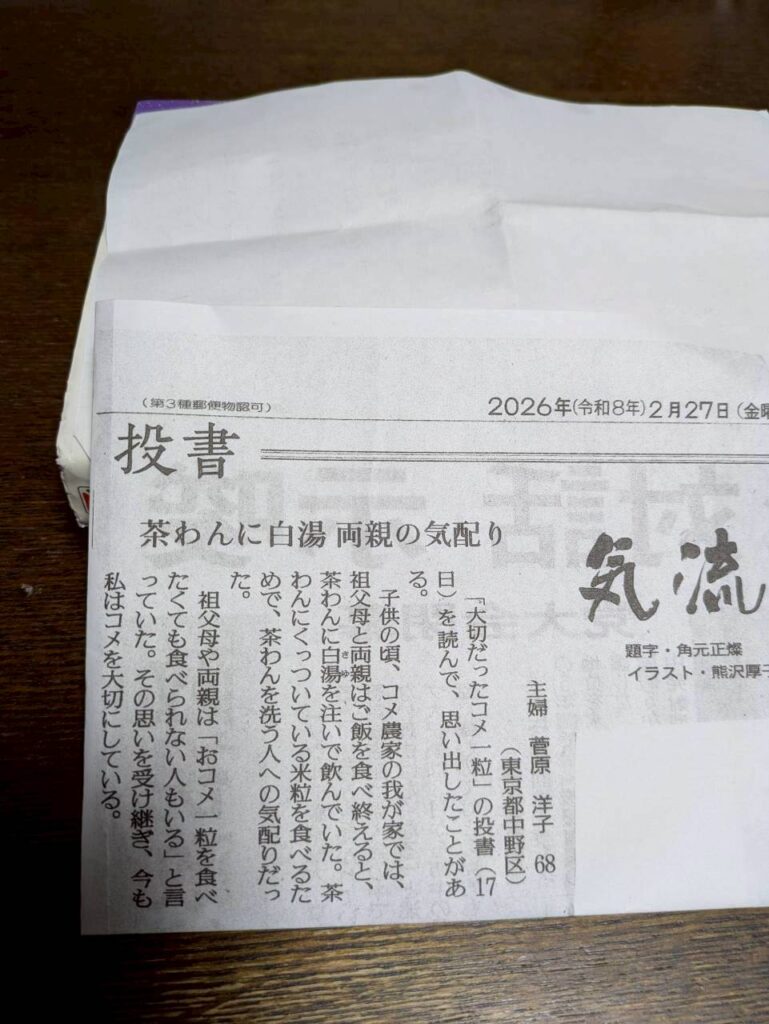 (第3種郵便物認可)
2026年(令和8年)2月27日(金曜
投書
気流
題字・角元正燦
イラスト・熊沢厚子
茶わんに白湯 両親の気配り
主婦 菅原 洋子 68
(東京都中野区)
「大切だったコメ一粒」の投書(17
日)を読んで、思い出したことがあ
る。
子供の頃、コメ農家の我が家では、
祖父母と両親はご飯を食べ終えると、
茶わんに白湯を注いで飲んでいた。茶
さゆ
わんにくっついている米粒を食べるた
めで、茶わんを洗う人への気配りだっ
た。
祖父母や両親は「おコメ一粒を食べ
たくても食べられない人もいる」と言
っていた。その思いを受け継ぎ、今も
私はコメを大切にしている。